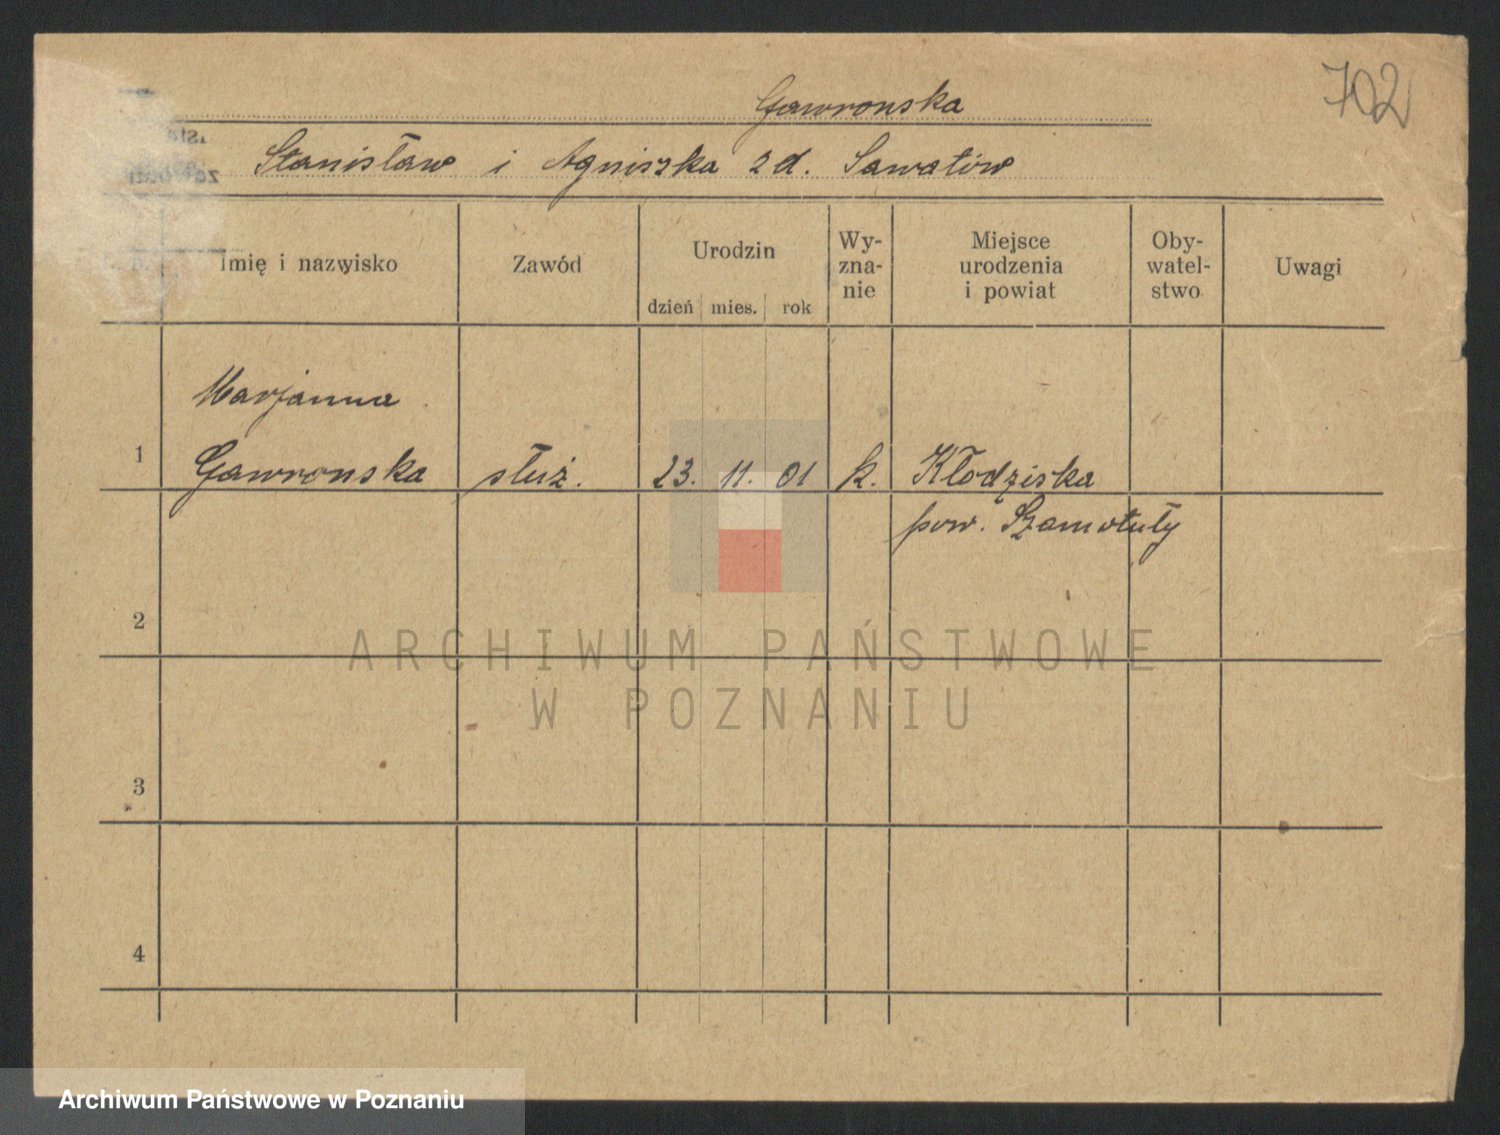 702
Gawronska
Stanisław i Agniszka z d. Sawatów
Imię i nazwisko
Zawód
Urodzin
dzień mies. rok
Wy-
zna-
nie
Miejsce
urodzenia
i powiat
Oby-
watel-
stwo
Uwagi
1
Marjanna
Gawronska
służ.
23. 11. 01
k.
Kłodziska
pow. Szamotuły
2
3
4
ARCHIWUM PAŃSTWOWE
W POZNANIU
Archiwum Państwowe w Poznaniu